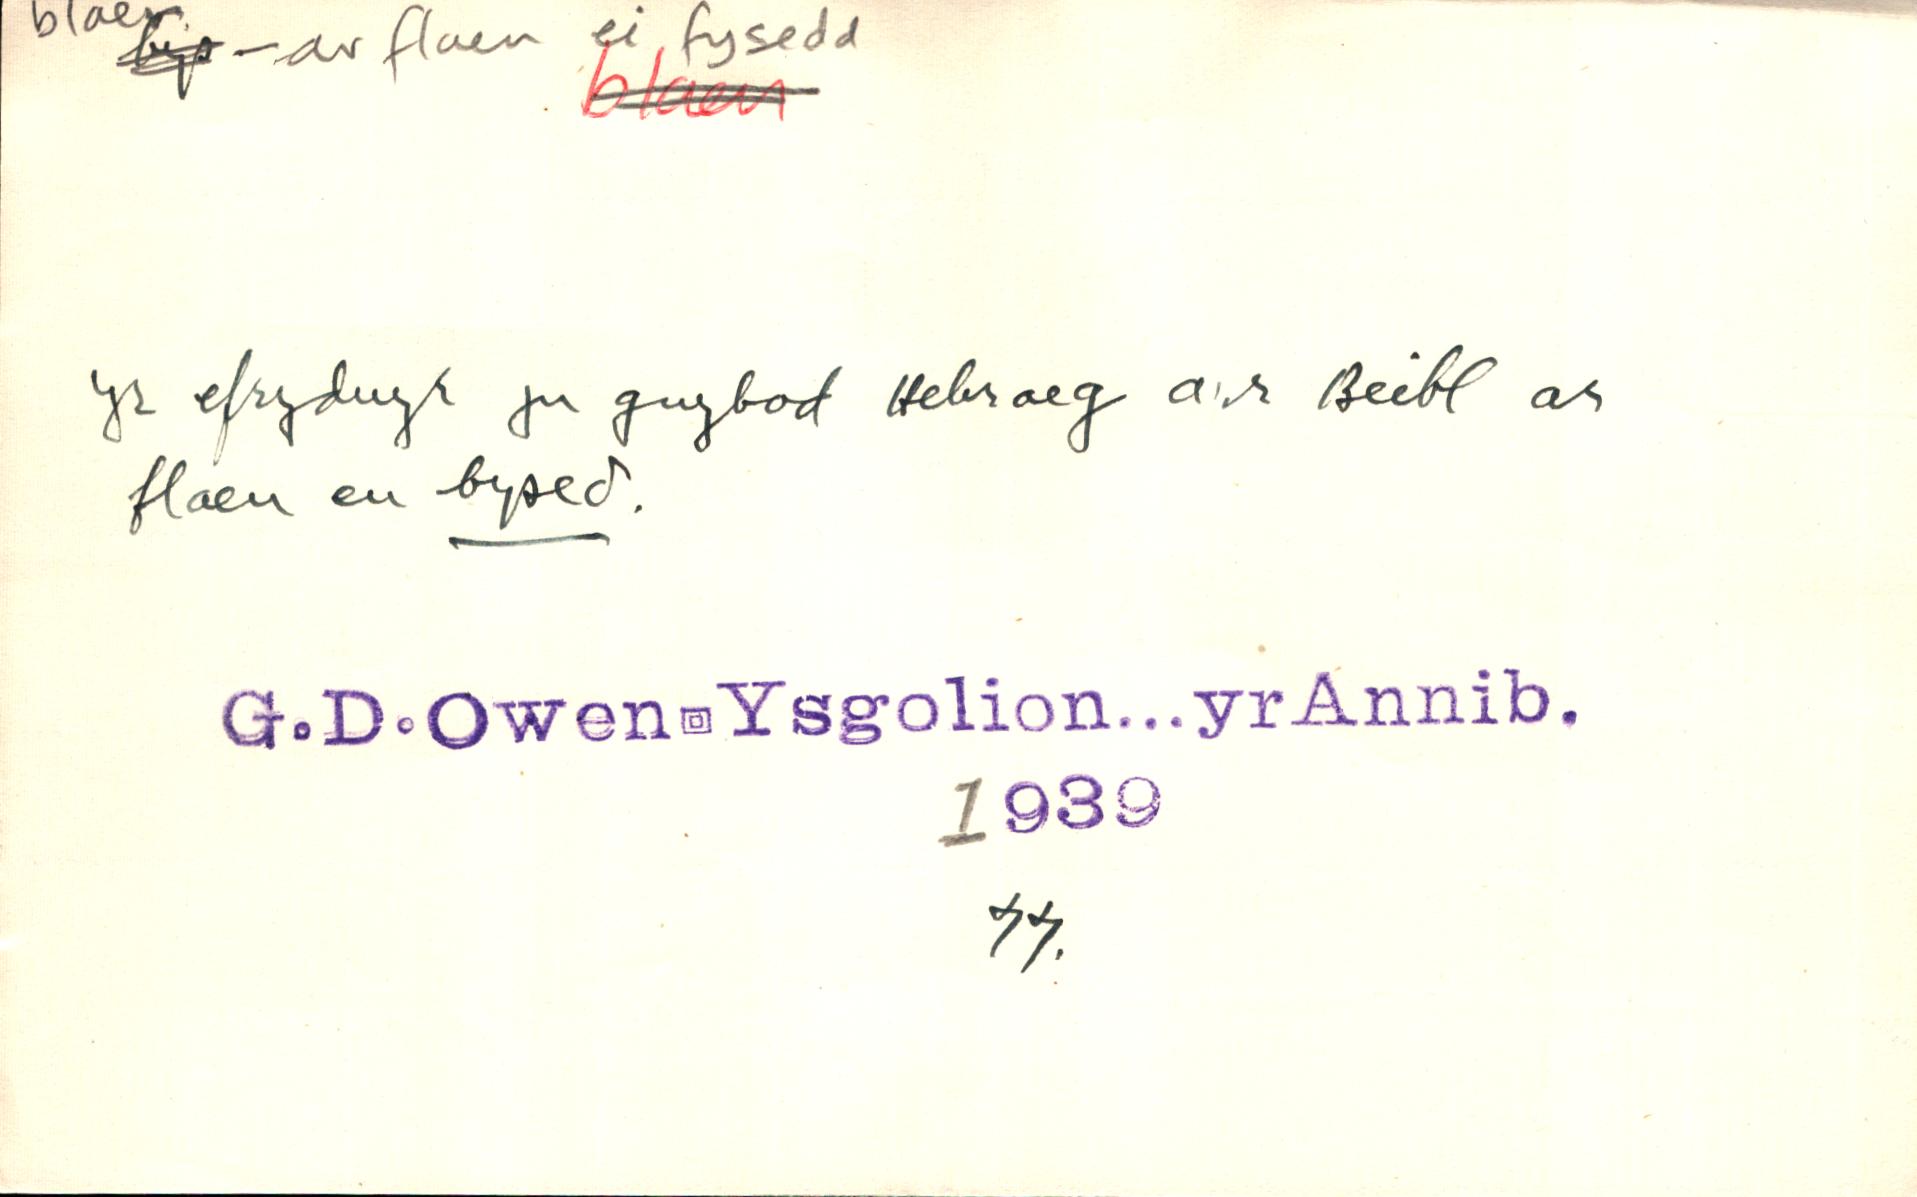 blaen
bys - ar flaen ei fysedd
blaen
yr efrydwyr yn gwybod Hebraeg a'r Beibl ar
flaen eu bysedd.
G.D.Owen Ysgolion...yr Annib.
1939
77.